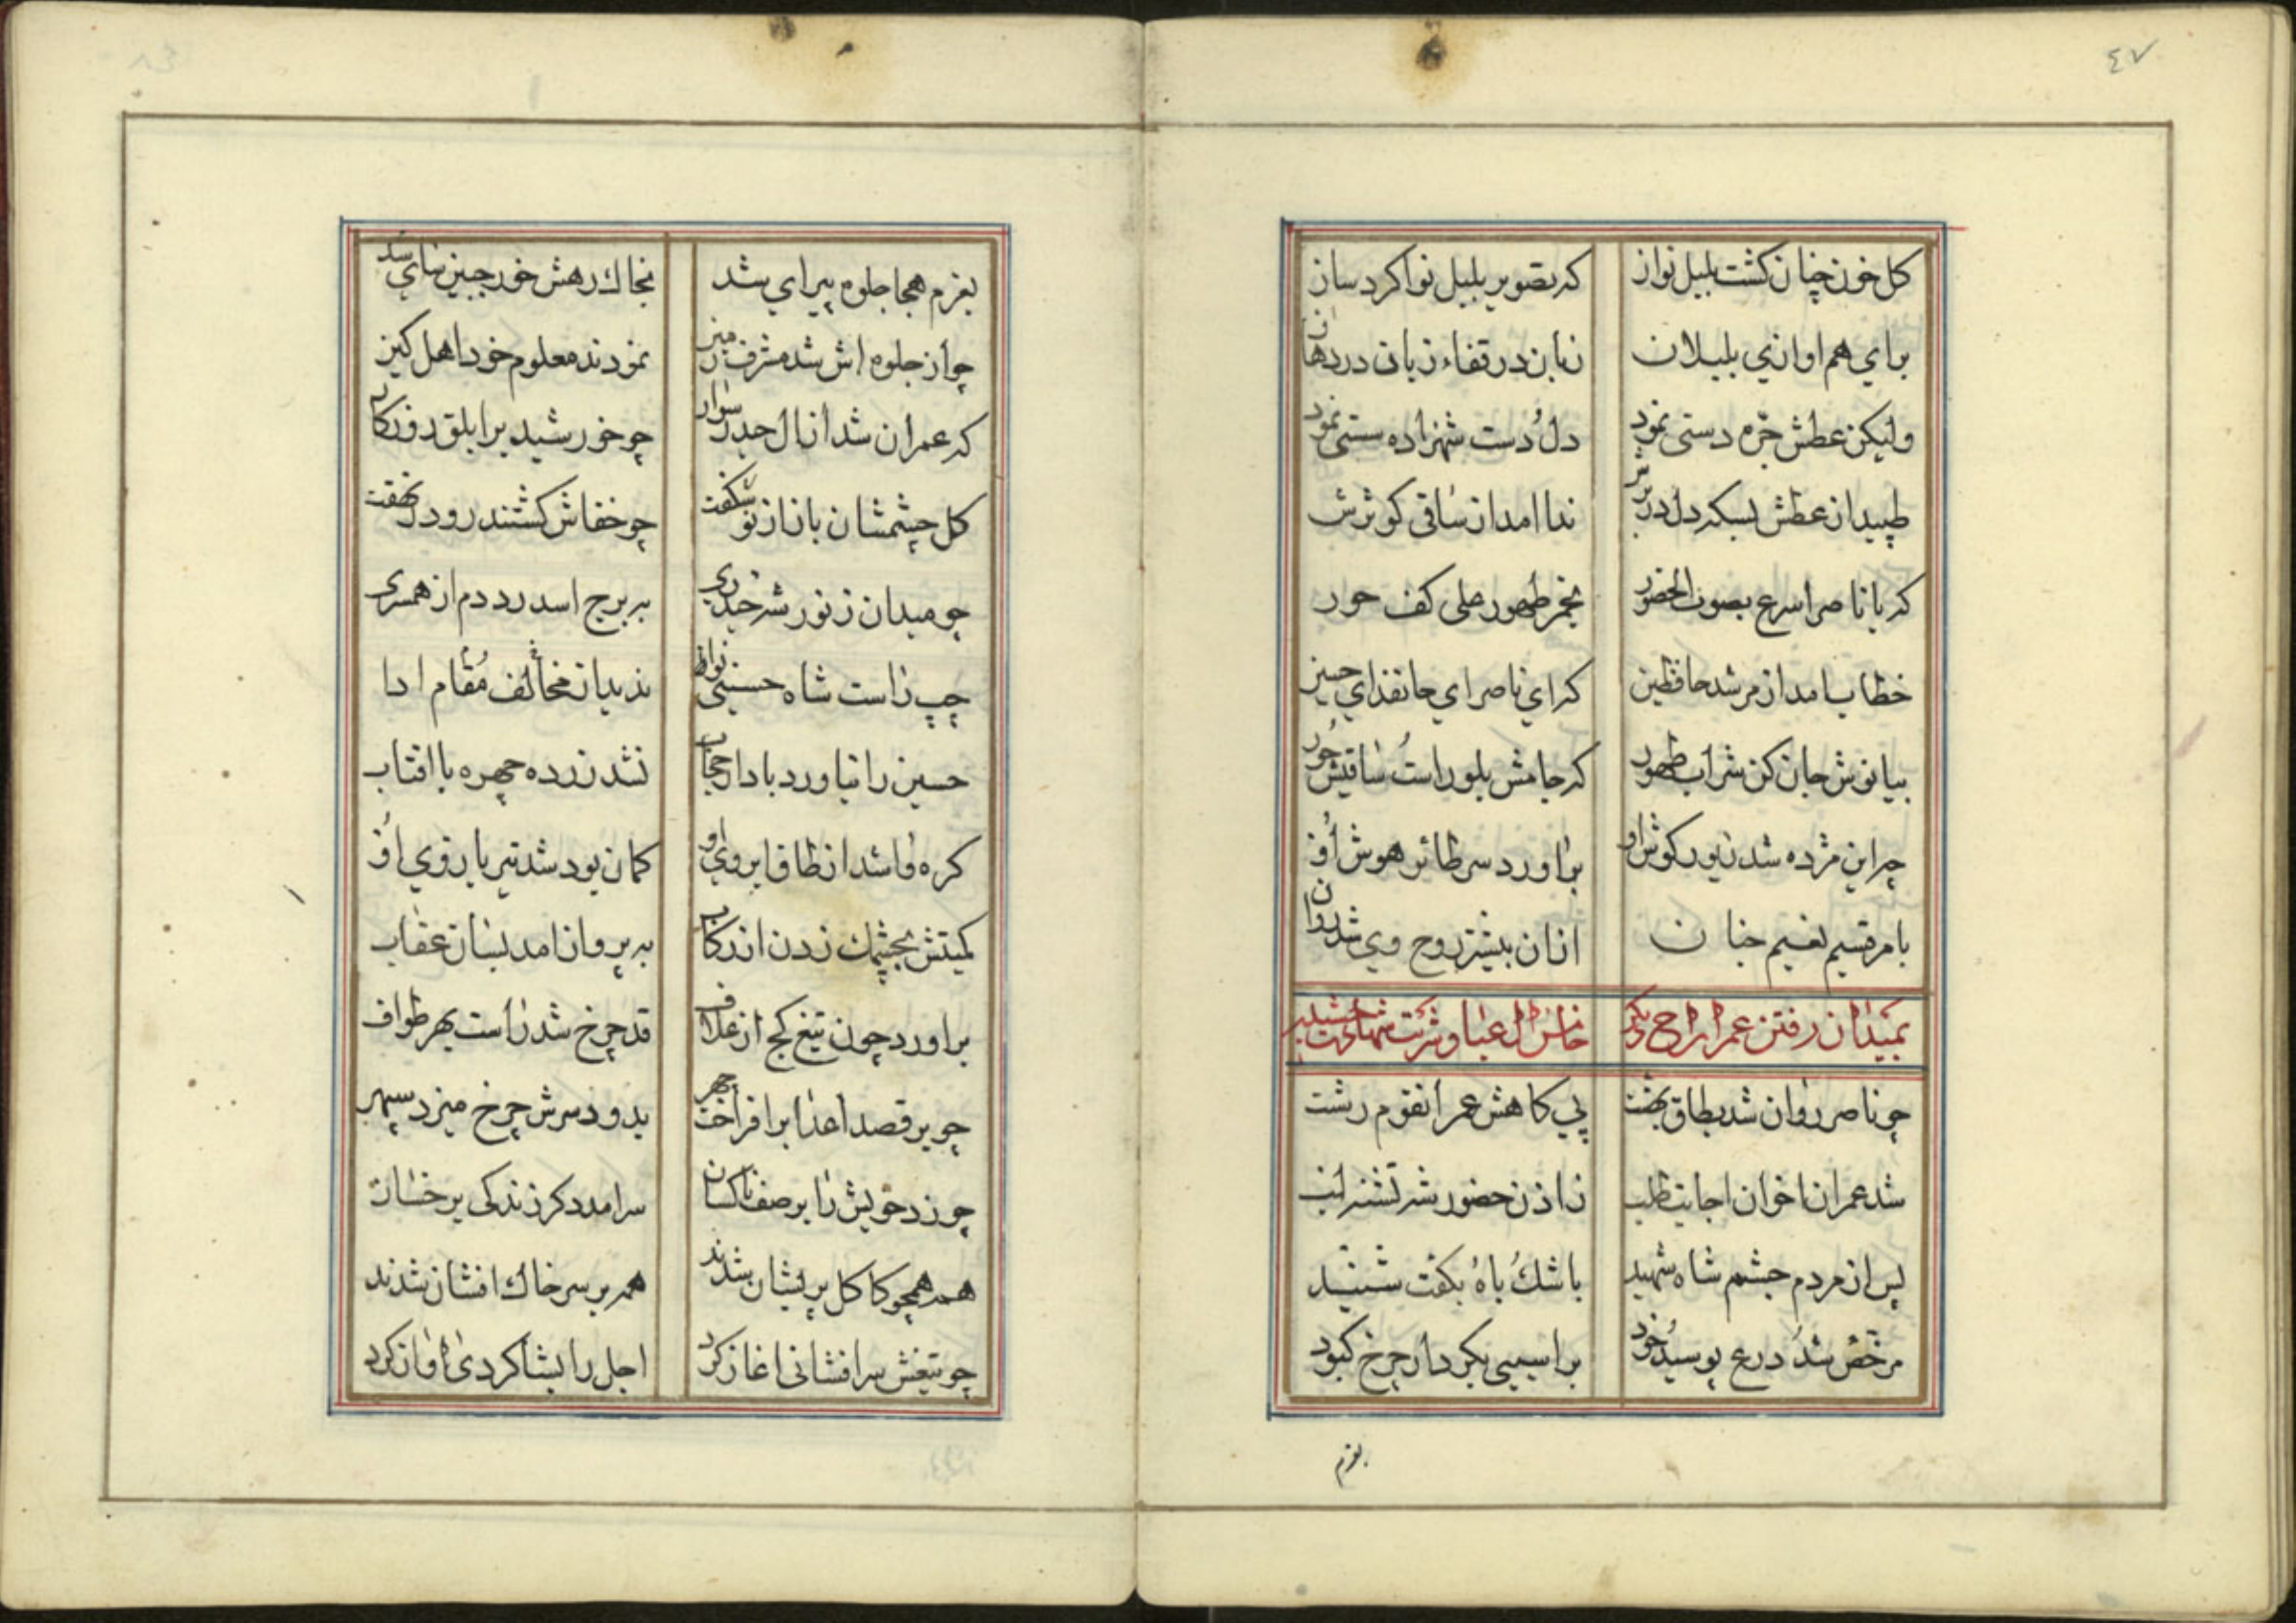 ٤٧
کل خون چنان کشت بلبل نواز که تصویر بلبل نوا کرد ساز
برای هم اوازی بلبلان زبان در قفاء زبان در دهان
ولیکن عطش جره دستی نمود دل دست شهزاده سستی نمود
طپید از عطش بسکه دل در برش ندا امد از ساقی کوثرش
که یا ناصر اسرع بصوت الحضور بخمر طهور علی کف حور
خطاب امد از مرشد حافظین که ای ناصر ای جانفدای حسین
بیا نوش جان کن شراب طهور که جامش بلور است ساقیش حور
چو این مژده شد زیور کوش او براورد سر طائر هوش او
بامر قسیم نعیم جنان ازان بیشتر روح وی شد روان
بمیدان رفتن عمران
چو ناصر روان شد بطاق بهشت پی کاهش عمر انقوم زشت
شد عمران اخوان اجابت طلب ز اذن حضور شه تشنه لب
پس از مردم چشم شاه شهید باشک باه بکفت شنید
مرخص شد درع پوسید خود بر اسبی بکردار چرخ کبود
بعزم
بعزم هجا جلوه پیرای شد بخاک رهش خور جبین سای شد
چو از جلوه اش شد مشرف زمین نمودند معلوم خود اهل کین
که عمران شد از ال حیدر سوار چو خورشید بر ابلق روزکار
کل چشمشان باناز نو شکفت چو خفاش کشتند رو در نهفت
چو میدان ز نور شه حیدری به برج اسد زد دم از همسری
چپ راست شاه حسینی نوا ندید از مخالف مقام ادا
حسین را نیاورد بادا رحجاب نشد زرده چهره با افتاب
کره وا شد از طاق ابروی او کمان بود شد تیر بازوی او
کمیتش بچشمک زدن از رکاب به پرواز امد بسان عقاب
براورد چون تیغ کج از غلاف قد چرخ شد راست بهر طواف
چو بر قصد اعدا برافراخت چهر بدود سرش چرخ میزد سپهر
چو زد خویش را بر صف ناکسان سرامد دکر زندکی بر خسان
همه همچو کاکل پریشان شدند همه بر سر خاک افشان شدند
چو تیغش سر افشانی اغاز کرد اجل را بشاکردی اواز کرد